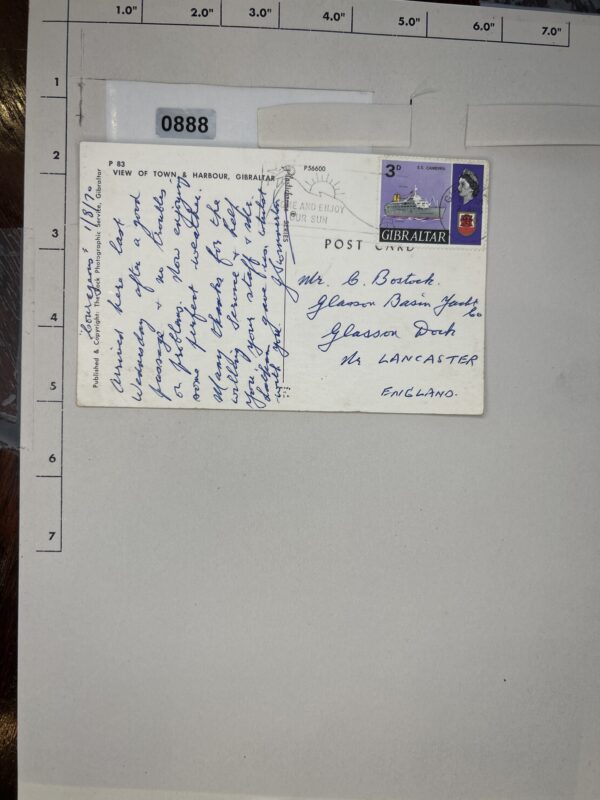 1.0" 2.0" 3.0" 4.0" 5.0" 6.0" 7.0"
1
2
3
4
5
6
7
0888
P 83
VIEW OF TOWN & HARBOUR, GIBRALTAR
P56600
POST CARD
Published & Copyright: The Rock Photographic Service, Gibraltar
1/8/70
Arrived here last
Wednesday after a good
passage & no troubles
or problems. Now enjoying
some perfect weather.
Many thanks for the
willing service & help
you, your staff & the
gave us whilst
with you
AND ENJOY
OUR SUN
3D
GIBRALTAR
Mr. C. Bostock.
Glasson Basin Yacht
Co
Glasson Dock
Nr LANCASTER
ENGLAND.